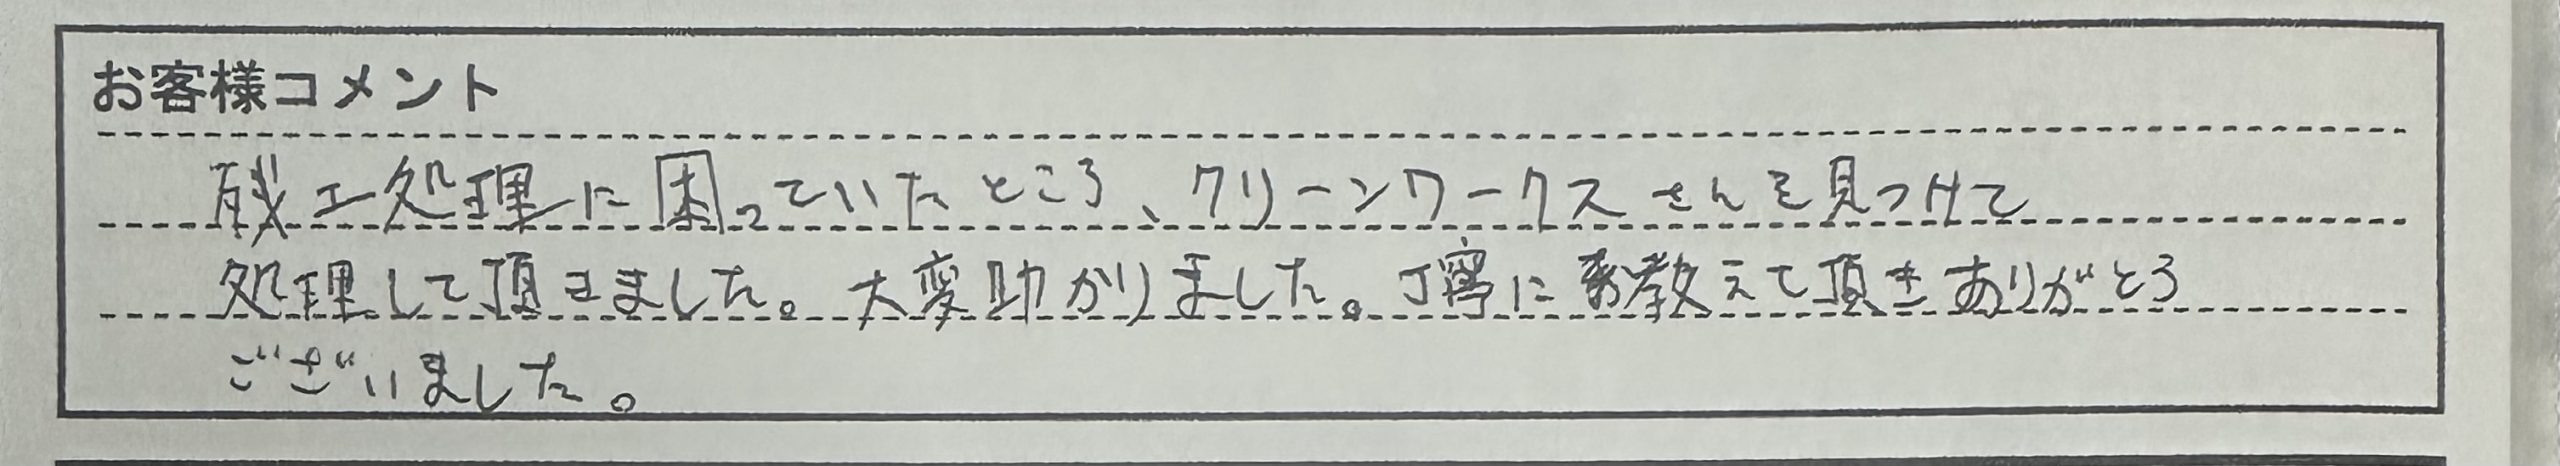 お客様コメント
残土処理に困っていたところ、クリーンワークスさんを見つけて
処理して頂きました。大変助かりました。丁寧に教えて頂きありがとう
ございました。